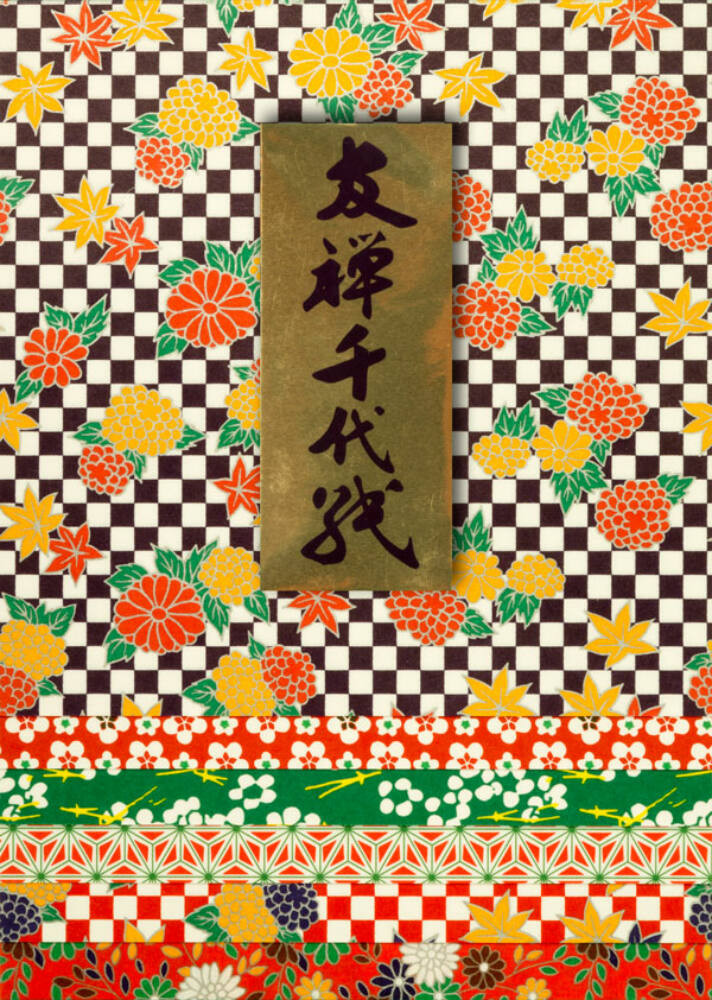 友禅千代紙